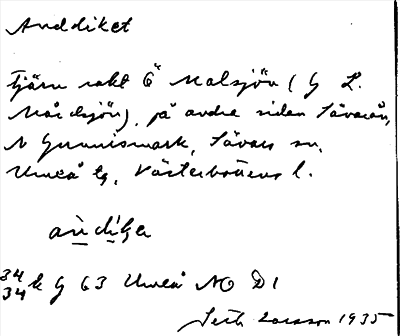 Anddiket
Tjärn rakt Ö Malsjön (G L.
Mårdsjön), på andra sidan Sävarån,
N Gunnismark, Sävars sn,
Umeå tg, Västerbottens l.
34 k G 63 Umeå NO D 1
34
Seth Larsson 1935